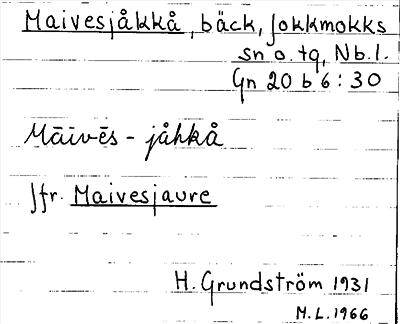 Maivesjåkkå, bäck, Jokkmokks
sn o. tg, Nb.l.
Gn 20 b 6:30
Māīvēs-jåhkå
Jfr. Maivesjaure
H. Grundström 1931
M.L. 1966